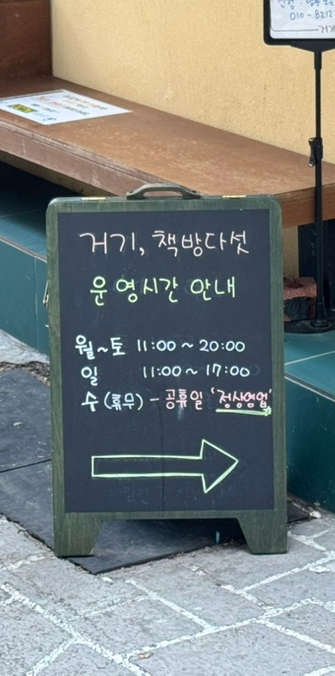 거기, 책방다섯
운영시간 안내
월~토 11:00 ~ 20:00
일 11:00 ~ 17:00
수 (휴무) - 공휴일 '정상영업'
010-8212